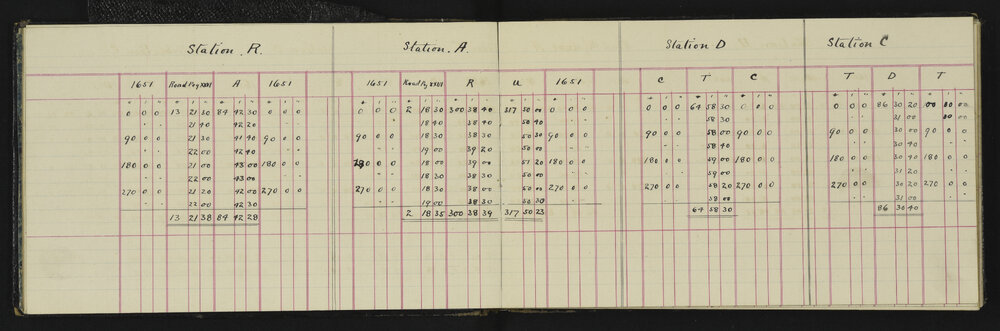 Station. R. Station. A. Station D Station C
1651 A 1651 1651 R u 1651 C T C T D T
° ' " ° ' " ° ' " ° ' " ° ' " ° ' " ° ' " ° ' " ° ' " ° ' " ° ' " ° ' " ° ' " ° ' " ° ' "
0 0 0 13 21 30 84 42 30 0 0 0 0 0 0 2 18 30 300 38 40 317 50 00 0 0 0 0 0 0 64 58 30 0 0 0 0 0 0 86 30 20 00 00 00
21 40 42 20 18 40 38 40 50 40 58 30 31 00 00 00
90 0 0 21 30 41 40 90 0 0 90 0 0 18 30 38 30 50 30 90 0 0 90 0 0 58 00 90 0 0 90 0 0 30 00 90 0 0
22 00 42 40 19 00 39 20 50 00 58 40 30 40
180 0 0 21 00 43 00 180 0 0 180 0 0 18 00 39 00 51 20 180 0 0 180 0 0 59 00 180 0 0 180 0 0 30 40 180 0 0
22 00 43 00 18 30 38 30 50 00 59 00 31 20
270 0 0 21 20 42 00 270 0 0 270 0 0 18 30 38 00 50 00 270 0 0 270 0 0 58 20 270 0 0 270 0 0 30 20 270 0 0
22 00 42 30 19 00 38 30 50 20 58 00 31 00
13 21 38 84 42 28 2 18 35 300 38 39 317 50 23 64 58 30 86 30 40